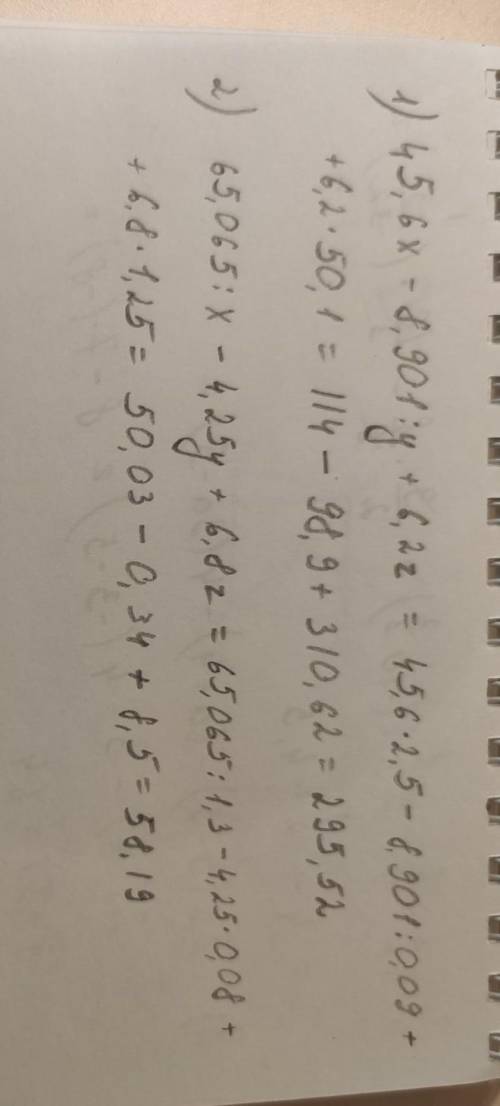 1) 45,6x - 8,901:y + 6,2z = 45,6·2,5 - 8,901:0,09 +
+6,2·50,1 = 114 - 98,9 + 310,62 = 295,52
2) 65,065:x - 4,25y + 6,8z = 65,065:1,3 - 4,25·0,08 +
+ 6,8·1,25 = 50,03 - 0,34 + 8,5 = 58,19